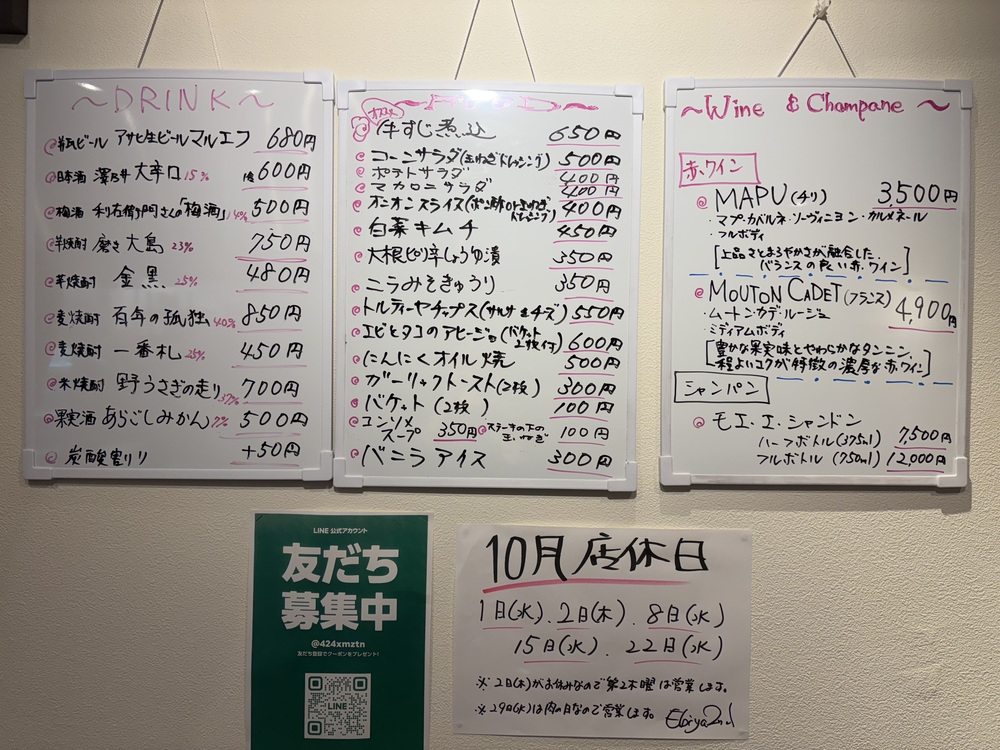 〜DRINK〜
瓶ビール アサヒ生ビールマルエフ 680円
日本酒 澤乃井 大辛口 15% 600円
梅酒 利右衛門さんの「梅酒」 14% 500円
芋焼酎 磨き大島 23% 750円
芋焼酎 金黒 25% 480円
麦焼酎 百年の孤独 40% 850円
麦焼酎 一番札 25% 450円
米焼酎 野うさぎの走り 37% 700円
果実酒 あらごしみかん 7% 500円
炭酸割り +50円
オススメ
牛すじ煮込 650円
コーンサラダ(玉ねぎドレッシング) 500円
ポテトサラダ 400円
マカロニサラダ 400円
オニオンスライス(ポン酢or玉ねぎドレッシング) 400円
白菜キムチ 450円
大根ピリ辛しょうゆ漬 350円
ニラみそきゅうり 350円
トルティーヤチップス(サルサ&チーズ) 550円
エビとタコのアヒージョ(バケット2枚付) 600円
にんにくオイル焼 500円
ガーリックトースト(2枚) 300円
バケット(2枚) 100円
コンソメスープ 350円 ステーキの下の玉ねぎ 100円
バニラアイス 300円
〜Wine & Champane〜
赤ワイン
MAPU(チリ) 3,500円
・マプ・カベルネ・ソーヴィニヨン・カルメネール
・フルボディ
[上品さとまろやかさが融合した、
バランスの良い赤ワイン]
MOUTON CADET(フランス) 4,900円
・ムートン・カデ・ルージュ
・ミディアムボディ
[豊かな果実味とやわらかなタンニン、
程よいコクが特徴の濃厚な赤ワイン]
シャンパン
モエ・エ・シャンドン
ハーフボトル(375ml) 7,500円
フルボトル(750ml) 12,000円
LINE 公式アカウント
友だち
募集中
@424xmztn
友だち登録でクーポンをプレゼント!
LINE
10月店休日
1日(水)、2日(木)、8日(水)
15日(水)、22日(水)
※2日(木)がお休みなので第2木曜は営業します。
※29日(水)は肉の日なので営業します。